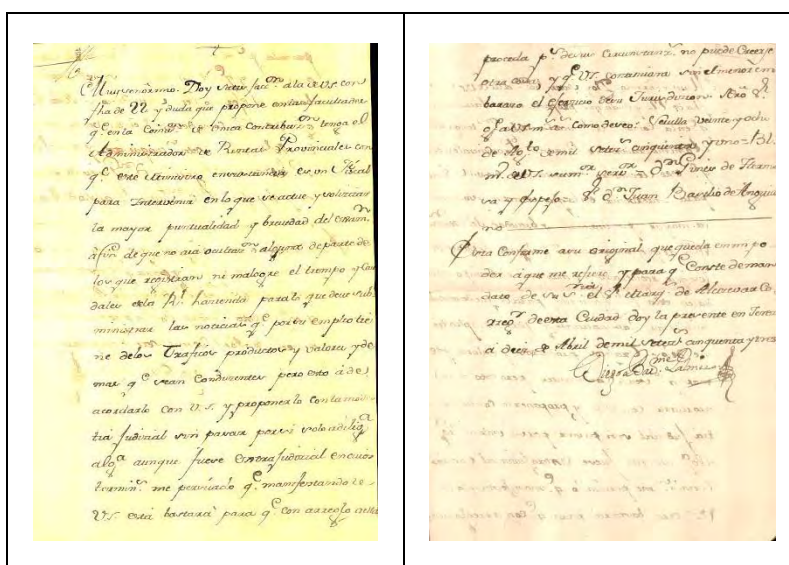 Muy Señor mio. Doy satisfac.on a la de VS. con
fha de 22 y duda que propone con las facultades
q.e en la Comis.n de Unica Contribuz.n tenga el
Administrador de Rentas Provinciales con
q.e este Ministro en sustancia es un Fiscal
para Intervenir en lo que se actue y solicitar
la mayor puntualidad y brevedad del exam.n
a fin de que no aia ocultaz.on alguna de parte de
los que registran ni malogre el tiempo y Cau
dales de la R.l hacienda para lo que deve sub
ministrar las noticias q.e por su empleo tie
ne de los Traficos productos y valores y de
mas q.e sean Conducentes pero esto a de
acordarlo con V.S. y proponerlo con la mod
tia Judicial sin pasar por si solo a dilig.a
alg.a aunque fuese extrajudicial en cuios
termin.s me persuado q.e manifestandole
V.S. esta bastará para q.e con arreglo a ella
proceda p.s de su Circunstanz.a no puede Creerse
otra cosa, y q.e VS. continuara sin el menor em
barazo el exercicio de su Jurisdicion. Dios g.e
a VS. m.s a.s como deseo: Sevilla veinte y ocho
de de mil setez.s cinquenta y uno = Bl.
m. de VS. su m.or serv.or D.n Gines de Hermo
sa y Espejo = S. D.n Juan Basilio de
no
Esta Conforme a su original que queda en mi po
der a que me refiero y para q.e Conste de man
dato de su S.ria el S.r Marq.s de Alcocevar Co
rreg.r de esta Ciudad doy la presente en Jerez
a de Abril de mil setez.s cinquenta y